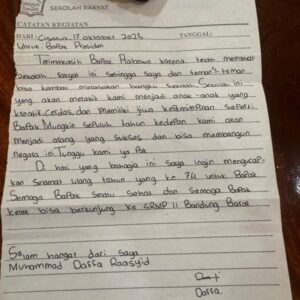 SEKOLAH RAKYAT
CATATAN KEGIATAN
HARI: Cisarua, 17 oktober 2025 TANGGAL:
Untuk Bapak Presiden
Terimakasih Bapak Prabowo karena telah membuat
sekolah rakyat ini sehingga saya dan teman² teman
bisa kembali merasakan bangku sekolah. Sekolah ini
yang akan merakit kami menjadi anak-anak yang
kreatif, Cerdas, dan memiliki jiwa kepemimpinan seperti
Bapak. Mungkin sepuluh tahun kedepan kami akan
menjadi orang yang sukses dan bisa membangun
negara ini. Tunggu kami ya Pak
Di hari yang bahagia ini saya ingin mengucap-
kan selamat ulang tahun yang ke 74 untuk Bapak.
Semoga Bapak selalu sehat dan semoga Bapak
kelak bisa berkunjung ke SRMP 11 Bandung Barat
Salam hangat dari saya
Muhammad Daffa Raasyid
Daffa.